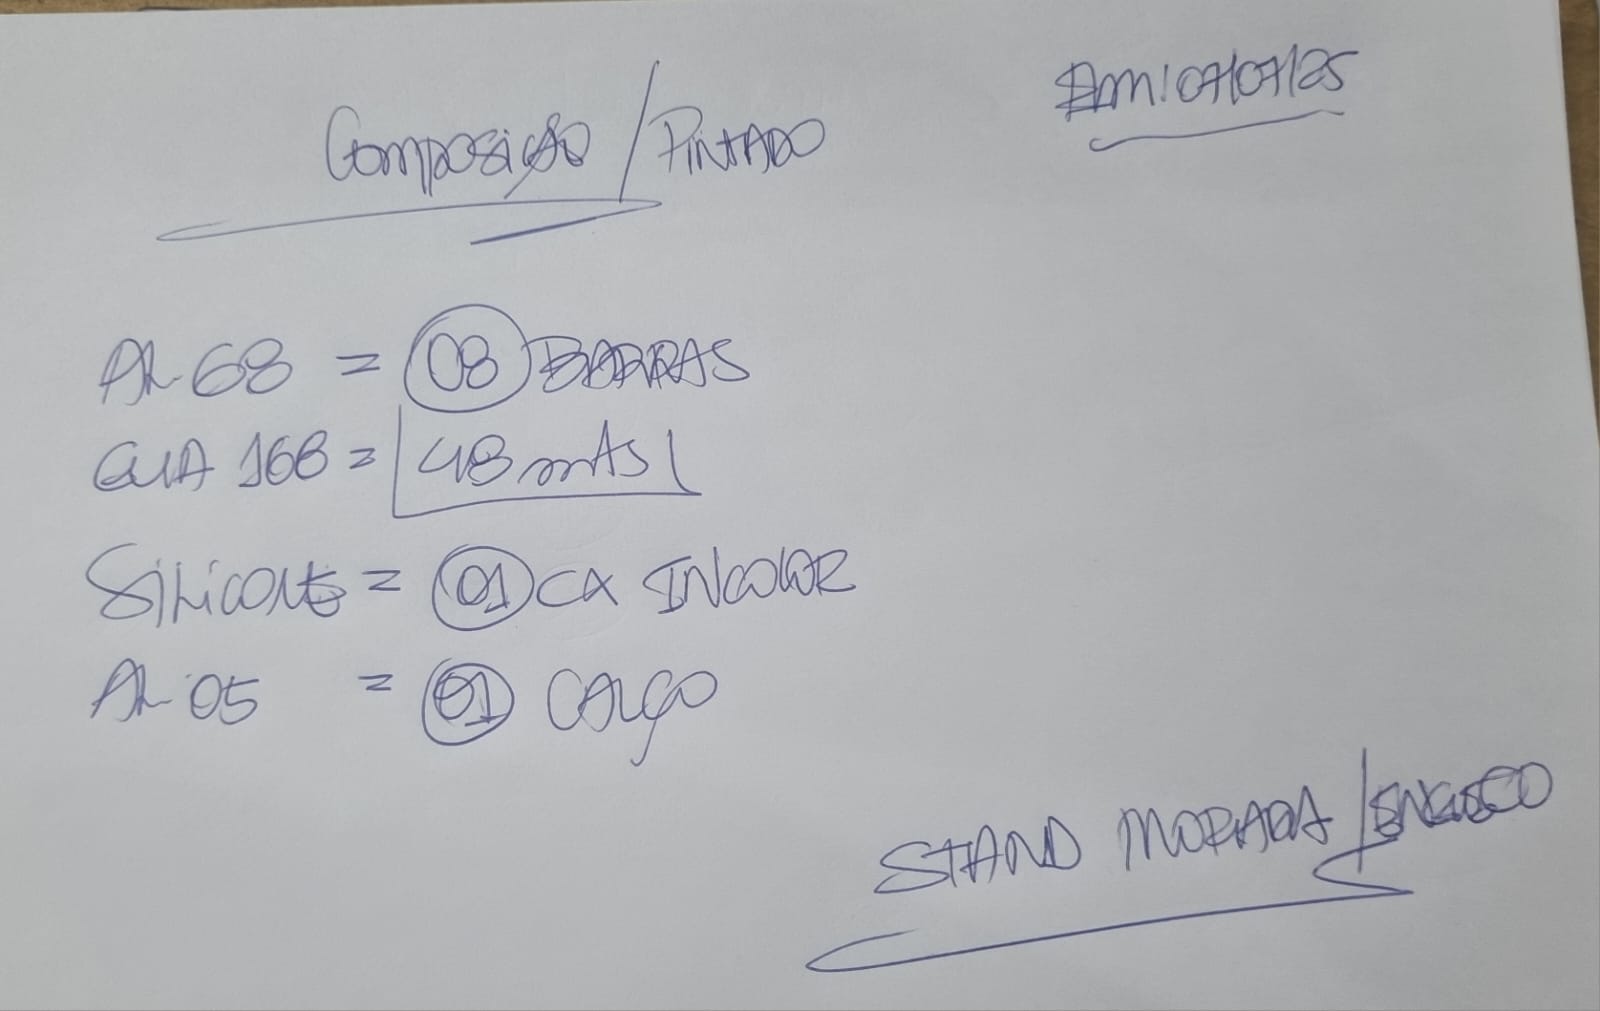 Composição / PINTADO
Em: 07/07/25
AL 68 = 08 BARRAS
GUA 168 = 48 mtAS
SiLicone = 01 CX INCOLOR
AL 05 = 01 CALÇO
STAND MORADA /